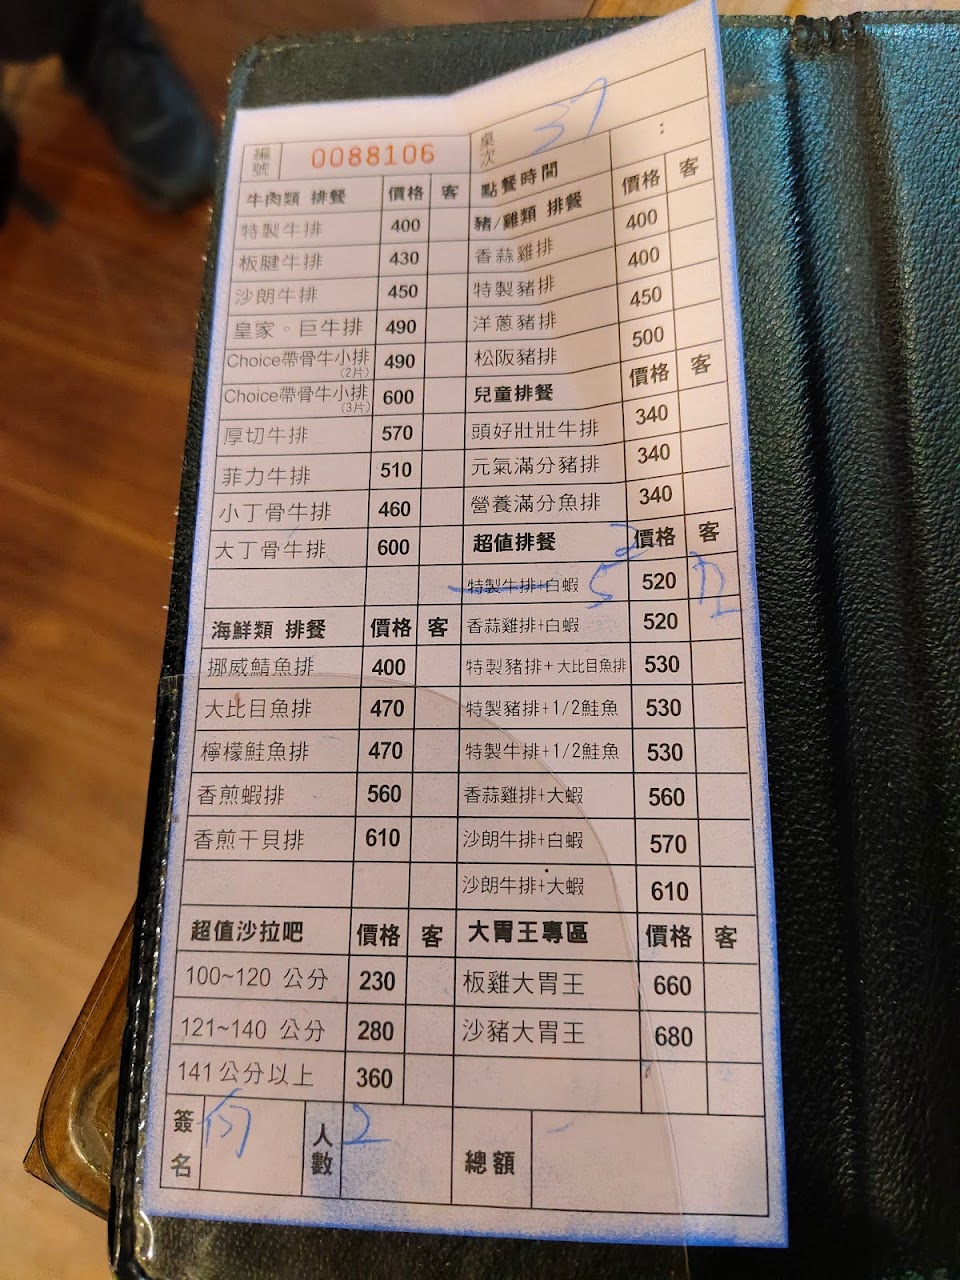 編號 0088106
桌次 37
牛肉類 排餐 價格 客
特製牛排 400
板腱牛排 430
沙朗牛排 450
皇家。巨牛排 490
Choice帶骨牛小排 (2片) 490
Choice帶骨牛小排 (3片) 600
厚切牛排 570
菲力牛排 510
小丁骨牛排 460
大丁骨牛排 600
海鮮類 排餐 價格 客
挪威鯖魚排 400
大比目魚排 470
檸檬鮭魚排 470
香煎蝦排 560
香煎干貝排 610
超值沙拉吧 價格 客
100~120 公分 230
121~140 公分 280
141公分以上 360
點餐時間 :
豬/雞類 排餐 價格 客
香蒜雞排 400
特製豬排 400
洋蔥豬排 450
松阪豬排 500
兒童排餐 價格 客
頭好壯壯牛排 340
元氣滿分豬排 340
營養滿分魚排 340
超值排餐 價格 客
特製牛排+白蝦 5 520
香蒜雞排+白蝦 520
特製豬排+大比目魚排 530
特製豬排+1/2鮭魚 530
特製牛排+1/2鮭魚 530
香蒜雞排+大蝦 560
沙朗牛排+白蝦 570
沙朗牛排+大蝦 610
大胃王專區 價格 客
板雞大胃王 660
沙豬大胃王 680
簽名
人數 2
總額